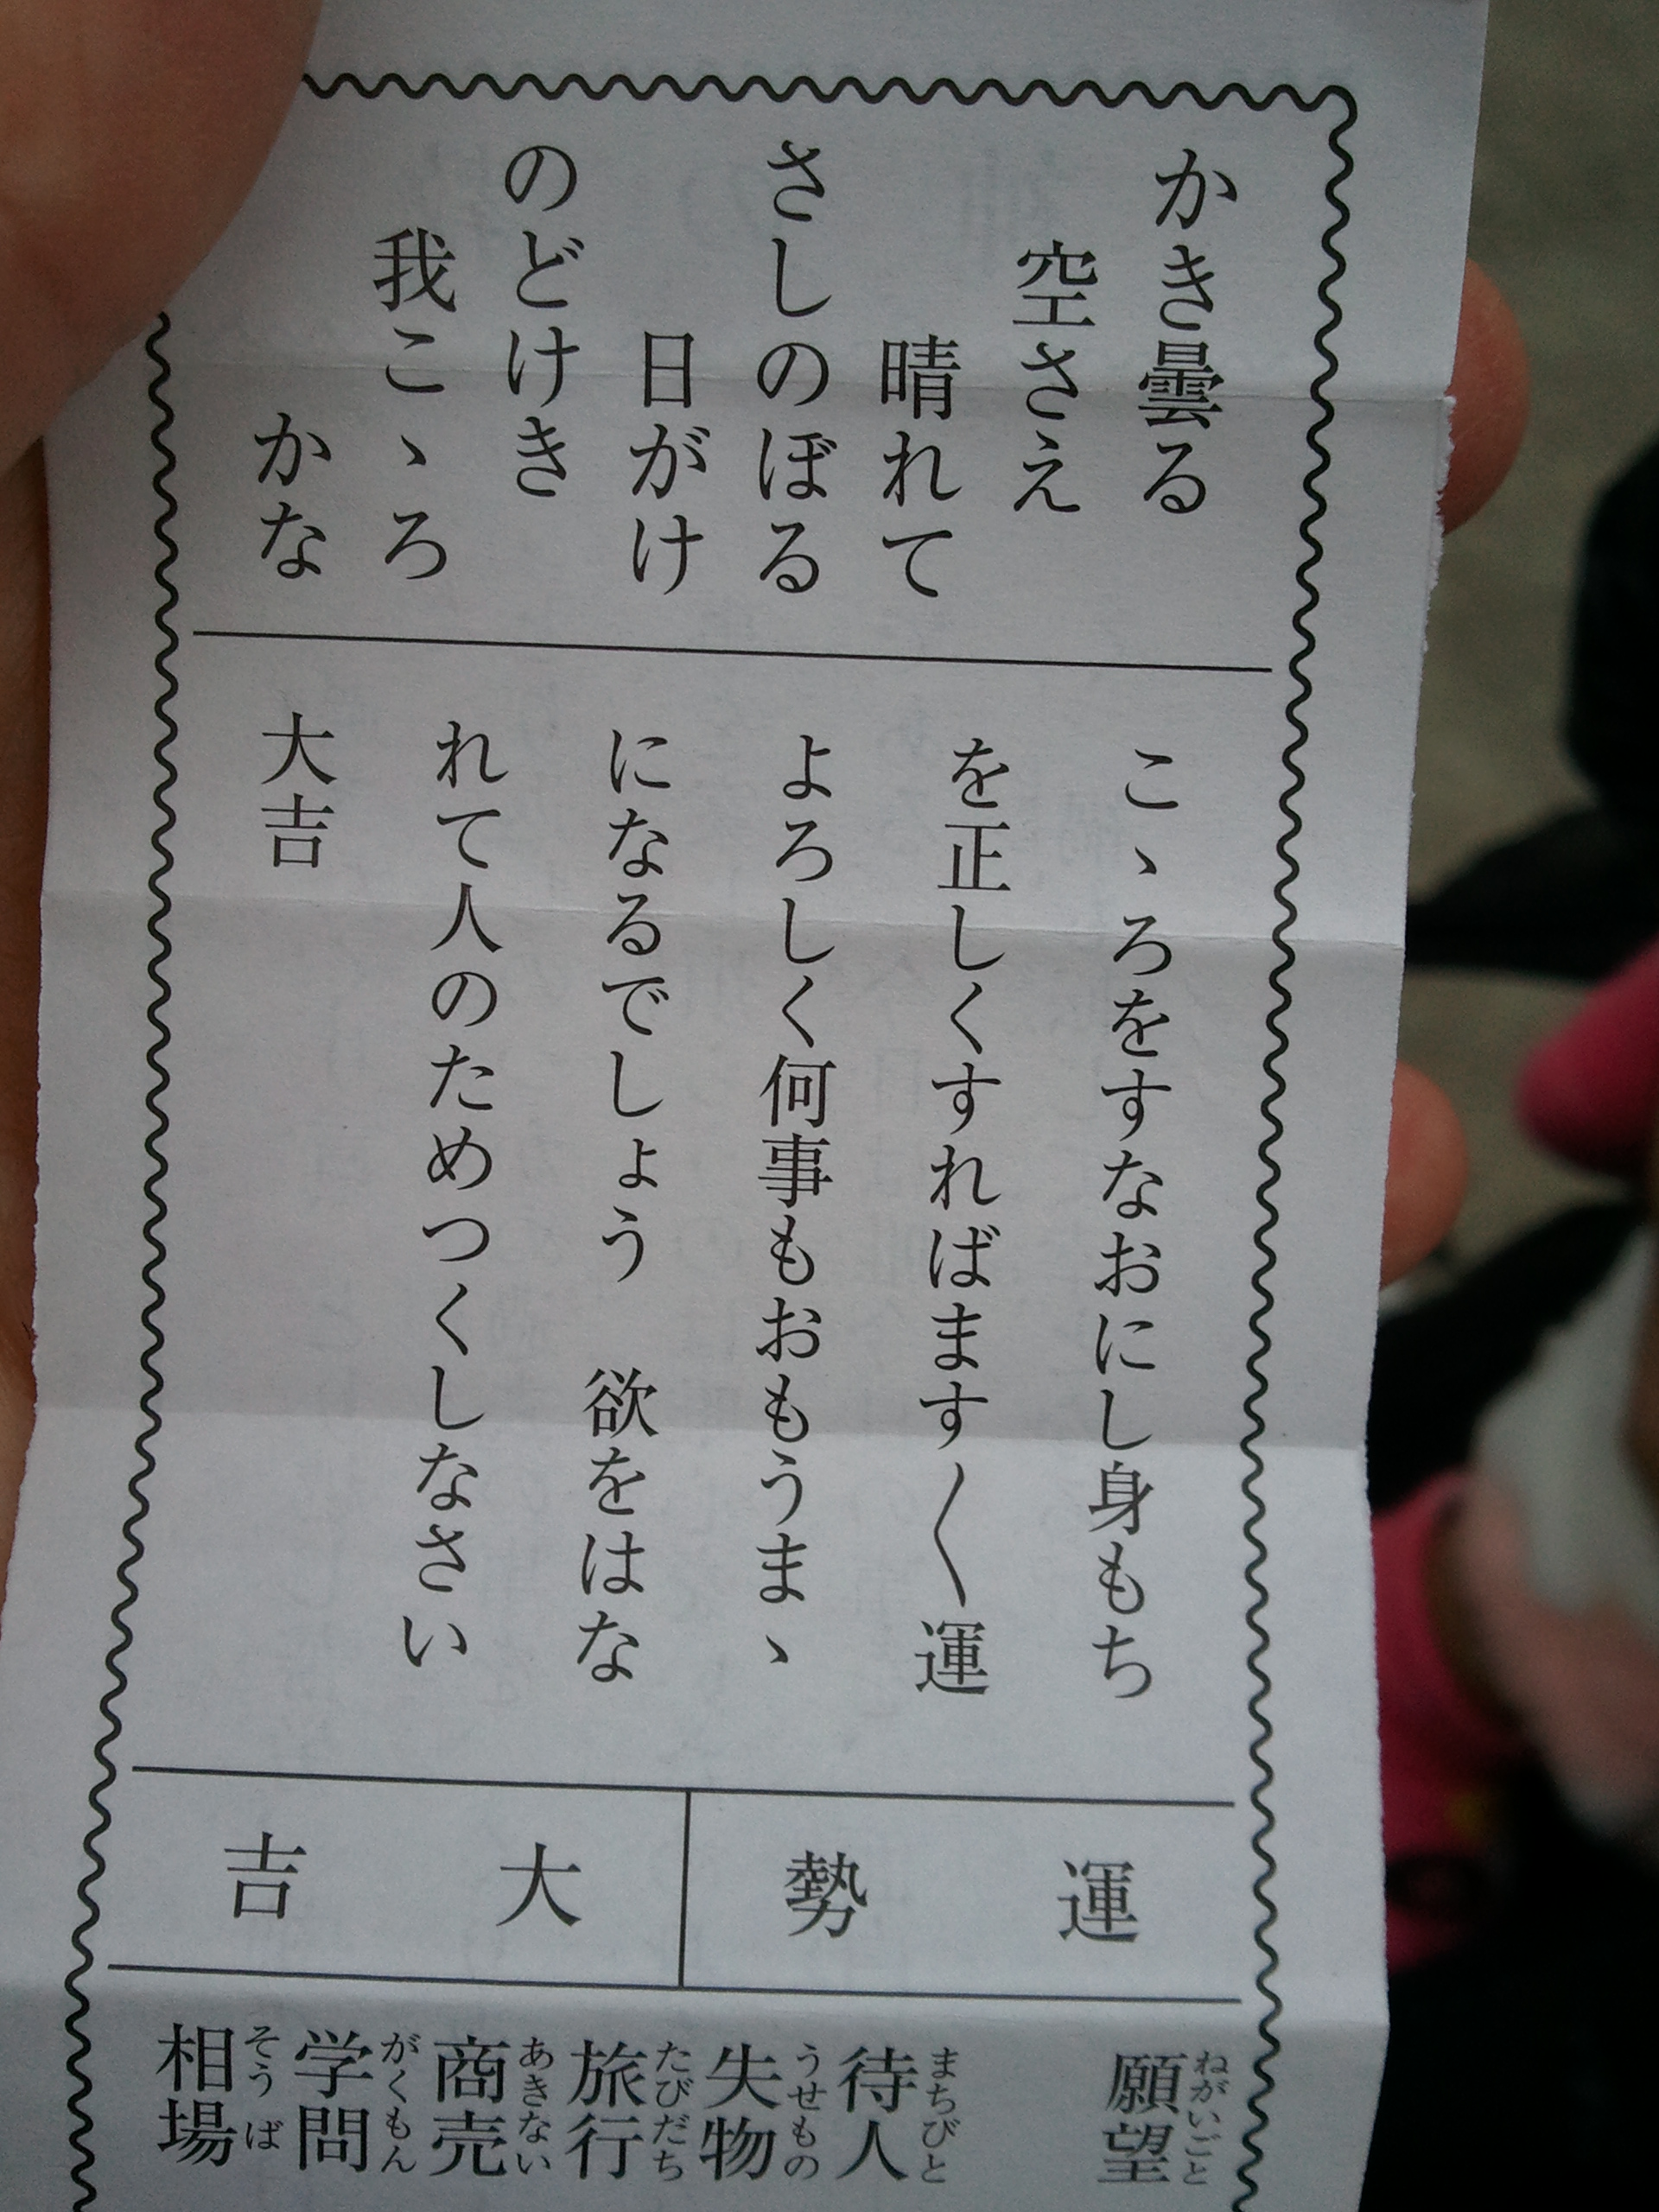 かき曇る
空さえ
晴れて
さしのぼる
日がけ
のどけき
我こゝろ
かな
こゝろをすなおにし身もち
を正しくすればます〱運
よろしく何事もおもうまゝ
になるでしょう　欲をはな
れて人のためつくしなさい
大吉
運勢
大吉
願望 ねがいごと
待人 まちびと
失物 うせもの
旅行 たびだち
商売 あきない
学問 がくもん
相場 そうば